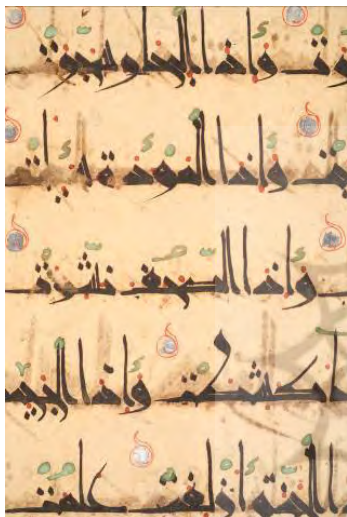 رت وإذا البحار سجرت
جت وإذا الموءدة سئلت
ت وإذا الصحف نشرت
ا كشطت وإذا الجحيم
ا الجنة أزلفت علمت